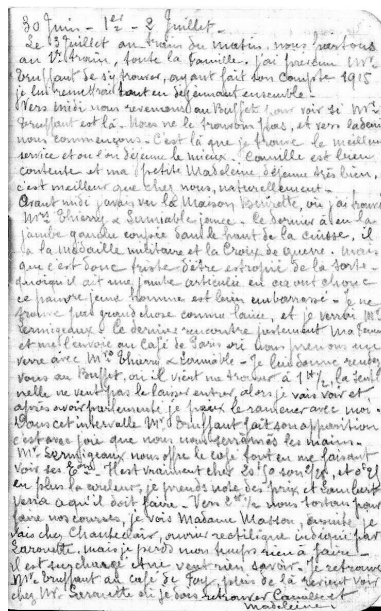 30 Juin - 1er - 2 Juillet -
Le 3 Juillet au train du matin, nous partons
au Vt train, toute la famille. j'ai prévenu Mr
Truffaut de s'y trouver, ayant fait son compte 1915
je lui remettrai tout en déjeunant ensemble -
Vers midi nous revenons au Buffet pour voir si Mr
Truffaut est là - Nous ne le trouvons pas, et vers
nous commençons - C'est là que je trouve le meilleur
service et où l'on déjeune le mieux - Camille est bien
contente et ma petite Madeleine déjeune très bien,
c'est meilleur que chez nous, naturellement -
Avant midi j'avais vu la Maison où j'ai trouvé
Mrs Thierry & jeune - Ce dernier a eu la
jambe gauche coupée dans le haut de la cuisse, il
a la médaille militaire et la Croix de guerre. Mais
que c'est donc triste d'être estropié de la sorte -
quoiqu'il ait une jambe articulée en caoutchouc
ce pauvre jeune homme est bien embarrassé - je ne
trouve pas grand chose comme laine, et je verrai Mr
Sermigeaux - Ce dernier rencontre justement ma femme
et me l'envoie au Café de Paris où nous prenons un
verre avec Mrs Thierry & - Je lui donne rendez
vous au Buffet, où il vient me trouver à 1h 1/2, la senti-
nelle ne veut pas le laisser entrer, alors je vais voir et
après avoir parlementé je peux le ramener avec moi -
Dans cet intervalle Mr Truffaut fait son apparition
c'est avec joie que nous nous serrons les mains -
Mr Sermigeaux nous offre le café tout en me faisant
voir ses - Il est vraiment cher
en plus la ardeur, je prends note des prix, et Lambert
verra ce qu'il doit faire - Vers 2h 1/2 nous sortons pour
faire nos courses, je vois Madame Masson, ensuite je
vais chez Chanteclair, ouvrier rectiligne indiqué par
Larouette, mais je perds mon temps rien à faire -
il est surchargé et ne veut rien savoir. Je retrouve
Mr Truffaut au Café de Foy, puis de là revient voir
chez Mr où je dois retrouver Camille et
Madeleine